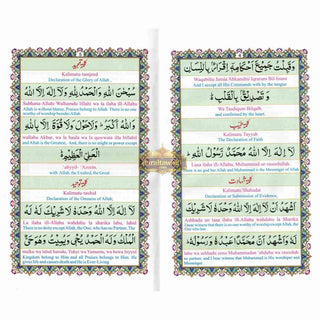 كلمة تمجيد
Kalimatu-tamjeed
Declaration of the Glory of Allah.
سُبْحَانَ اللهِ وَالْحَمْدُ لِلّٰهِ وَلَآ اِلٰهَ اِلَّا اللهُ
Subhana-Allahi Walhamdu Lillahi wa la ilaha ill-Allahu
Allah is without blemish. Praises belong to Allah. There is no one
worthy of worship besides Allah.
وَاللهُ اَكْبَرُ وَلَاحَوْلَ وَلَا قُوَّةَ اِلَّا بِاللهِ
wallahu Akbar, wa la haula wa la quwwata illa billahil
and Allah is the Greatest. And, there is no might or power except
الْعَلِيِّ الْعَظِيْمِ
'aliyyil-'Azeem.
with Allah, the Exalted, the Great
كلمة توحيد
Kalimatu-tauhid
Declaration of the Oneness of Allah.
لَآ اِلٰهَ اِلَّا اللهُ وَحْدَهٗ لَا شَرِيْكَ لَهٗ لَهُ
La ilaha ill-Allahu wahdahu la sharika lahu, lahul
There is no deity except Allah, the One, who has no Partner, The
الْمُلْكُ وَلَهُ الْحَمْدُ يُحْيٖ وَيُمِيْتُ وَهُوَ حَيٌّ
mulku wa lahul hamdu, Yuhyi wa Yumeetu, wa huwa hayyul
Kingdom belong to Him and all Praises belong to Him. He
gives life and causes death and He is Ever-Living
وَقَبِلْتُ جَمِيْعَ اَحْكَامِهٖ اِقْرَارٌ بِاللِّسَانِ
Waqabiltu Jamia Ahkamihi Iqrarum Bil-lisani
and I accept all His Commands with by the tongue
وَ تَصْدِيْقٌ بِالْقَلْبِ
Wa Tasdiqum Bilqalb.
and confirmed by the heart.
Kalimatu Tayyab
The Declaration of Faith
لَآ اِلٰهَ اِلَّا اللهُ مُحَمَّدٌ رَّسُوْلُ اللهِ
Laaa ilaha ill-Allahu, Muhammadur-rasoolullah.
There is no god but Allah and Muhammad is the Messenger of Allah
كلمة شهادت
Kalimatu-Shahadat
Declaration or Submission of Evidence.
اَشْهَدُ اَنْ لَّآ اِلٰهَ اِلَّا اللهُ وَحْدَهٗ لَاشَرِيْكَ
Ashhadu an laaa ilaha ill-Allahu wahdahu la Sharika
I bear witness that there is no one worthy of worship except Allah, the
One who has no
لَهٗ وَاَشْهَدُ اَنَّ مُحَمَّدًا عَبْدُهٗ وَرَسُوْلُهٗ
lahu wa ashhadu anna Muhammadan 'abduhu wa rasooluhu.
partner, and I bear witness that Muhammad is His worshiper and
Messenger.